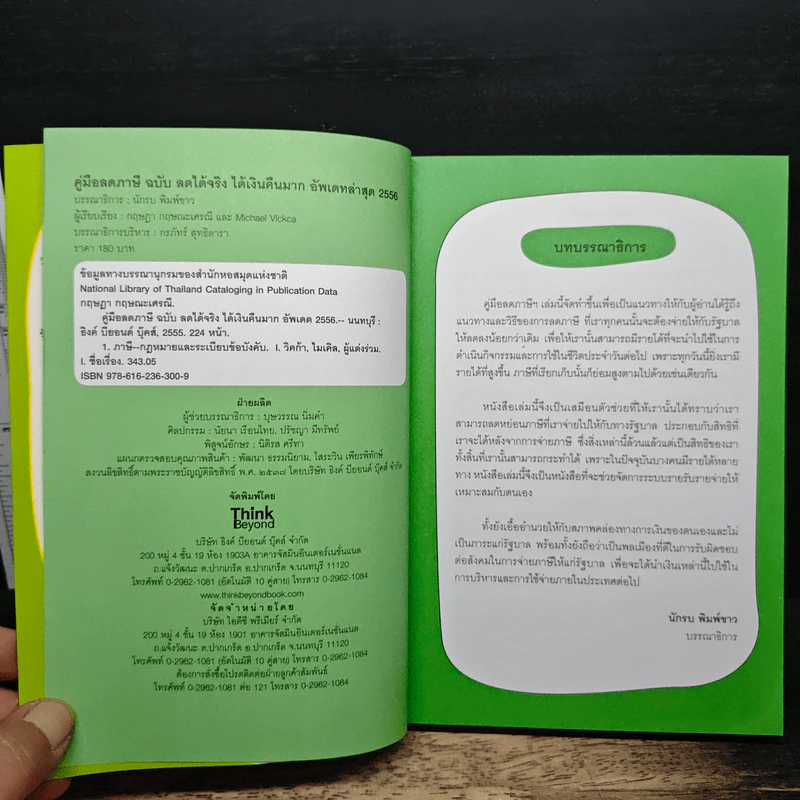 คู่มือลดภาษี ฉบับ ลดได้จริง ได้เงินคืนมาก อัพเดทล่าสุด 2556
บรรณาธิการ : นักรบ พิมพ์ขาว
ผู้เรียบเรียง : กฤษฎา กฤษณะเศรณี และ Michael Vickca
บรรณาธิการบริหาร : กรภัทร์ สุทธิดารา
ราคา 180 บาท
ข้อมูลทางบรรณานุกรมของสำนักหอสมุดแห่งชาติ
National Library of Thailand Cataloging in Publication Data
กฤษฎา กฤษณะเศรณี.
คู่มือลดภาษี ฉบับ ลดได้จริง ได้เงินคืนมาก อัพเดต 2556.-- นนทบุรี :
ธิงค์ บียอนด์ บุ๊คส์, 2555. 224 หน้า.
1. ภาษี--กฎหมายและระเบียบข้อบังคับ. I. วิคก้า, ไมเคิล, ผู้แต่งร่วม.
I. ชื่อเรื่อง. 343.05
ISBN 978-616-236-300-9
ฝ่ายผลิต
ผู้ช่วยบรรณาธิการ : บุษวรรณ นิ่มคำ
ศิลปกรรม : นัยนา เรือนไทย. ปรัชญา มีทรัพย์
พิสูจน์อักษร : นิติรส ศรีทา
แผนกตรวจสอบคุณภาพสินค้า : พัฒนา ธรรมนิยาม. ไสระวิน เพียรพิทักษ์
สงวนลิขสิทธิ์ตามพระราชบัญญัติลิขสิทธิ์ พ.ศ. ๒๕๓๗ โดยบริษัท ธิงค์ บียอนด์ บุ๊คส์ จำกัด
จัดพิมพ์โดย
Think
Beyond
บริษัท ธิงค์ บียอนด์ บุ๊คส์ จำกัด
200 หมู่ 4 ชั้น 19 ห้อง 1903A อาคารจัสมินอินเตอร์เนชั่นแนล
ถ.แจ้งวัฒนะ ต.ปากเกร็ด อ.ปากเกร็ด จ.นนทบุรี 11120
โทรศัพท์ 0-2962-1081 (อัตโนมัติ 10 คู่สาย) โทรสาร 0-2962-1084
www.thinkbeyondbook.com
จัดจำหน่ายโดย
บริษัท ไอดีซี พรีเมียร์ จำกัด
200 หมู่ 4 ชั้น 19 ห้อง 1901 อาคารจัสมินอินเตอร์เนชั่นแนล
ถ.แจ้งวัฒนะ ต.ปากเกร็ด อ.ปากเกร็ด จ.นนทบุรี 11120
โทรศัพท์ 0-2962-1081 (อัตโนมัติ 10 คู่สาย) โทรสาร 0-2962-1084
ต้องการสั่งซื้อโปรดติดต่อฝ่ายลูกค้าสัมพันธ์
โทรศัพท์ 0-2962-1081 ต่อ 121 โทรสาร 0-2962-1084
บทบรรณาธิการ
คู่มือลดภาษีฯ เล่มนี้จัดทำขึ้นเพื่อเป็นแนวทางให้กับผู้อ่านได้รู้ถึง
แนวทางและวิธีของการลดภาษี ที่เราทุกคนนั้นจะต้องจ่ายให้กับรัฐบาล
ให้ลดลงน้อยกว่าเดิม เพื่อให้เรานั้นสามารถมีรายได้ที่จะนำไปใช้ในการ
ดำเนินกิจกรรมและการใช้ในชีวิตประจำวันต่อไป เพราะทุกวันนี้ยิ่งเรามี
รายได้ที่สูงขึ้น ภาษีที่เรียกเก็บนั้นก็ย่อมสูงตามไปด้วยเช่นเดียวกัน
หนังสือเล่มนี้จึงเป็นเสมือนตัวช่วยที่ให้เรานั้นได้ทราบว่าเรา
สามารถลดหย่อนภาษีที่เราจ่ายไปให้กับทางรัฐบาล ประกอบกับสิทธิที่
เราจะได้หลังจากการจ่ายภาษี ซึ่งสิ่งเหล่านี้ล้วนแล้วแต่เป็นสิทธิของเรา
ทั้งสิ้นที่เรานั้นสามารถกระทำได้ เพราะในปัจจุบันบางคนมีรายได้หลาย
ทาง หนังสือเล่มนี้จึงเป็นหนังสือที่จะช่วยจัดการระบบรายรับรายจ่ายให้
เหมาะสมกับตนเอง
ทั้งยังเอื้ออำนวยให้กับสภาพคล่องทางการเงินของตนเองและไม่
เป็นภาระแก่รัฐบาล พร้อมทั้งยังถือว่าเป็นพลเมืองที่ดีในการรับผิดชอบ
ต่อสังคมในการจ่ายภาษีให้แก่รัฐบาล เพื่อจะได้นำเงินเหล่านี้ไปใช้ใน
การบริหารและการใช้จ่ายภายในประเทศต่อไป
นักรบ พิมพ์ขาว
บรรณาธิการ